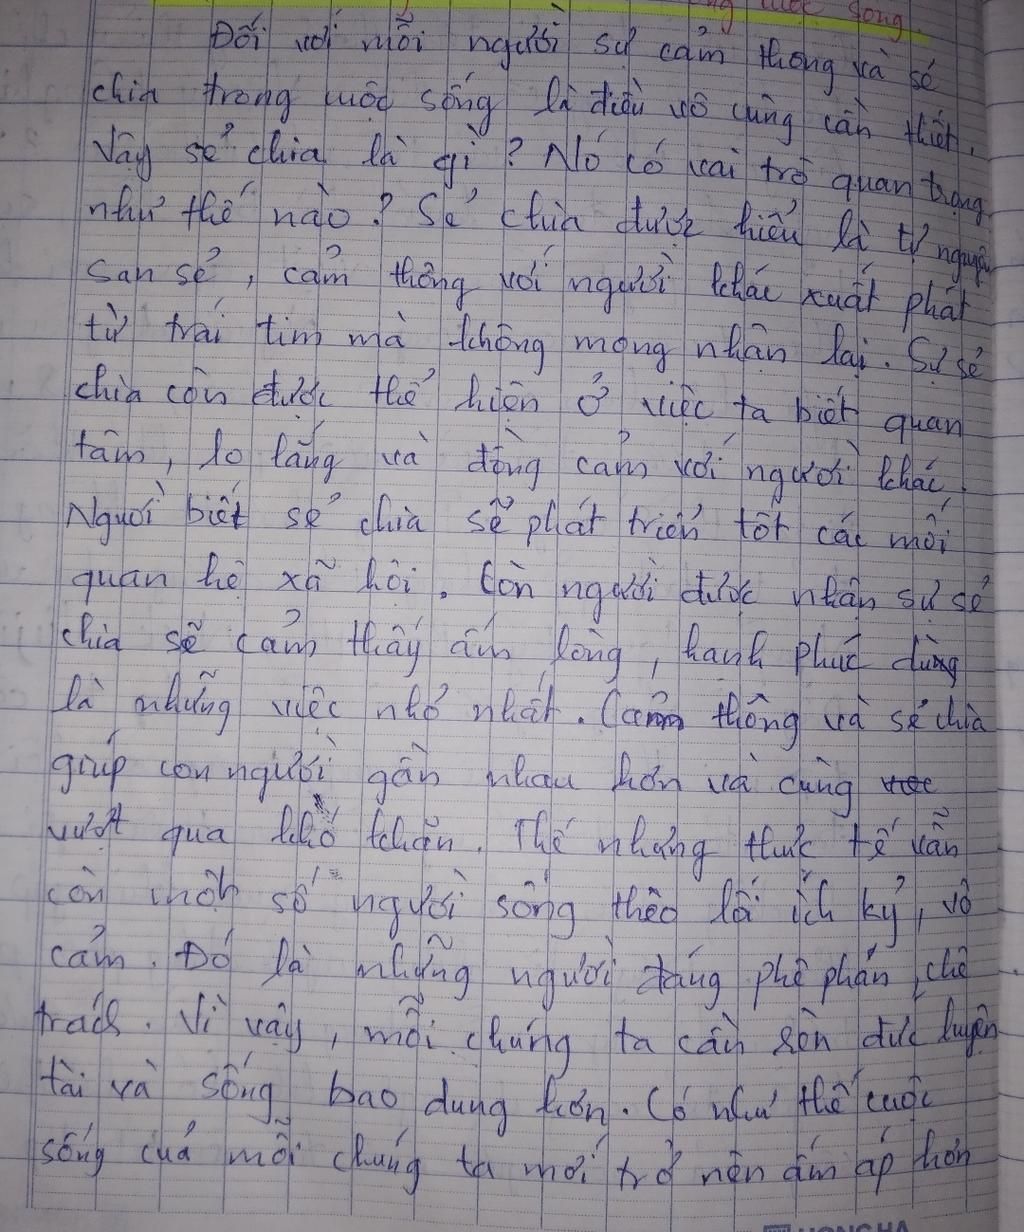 cuộc sống
Đối với mỗi người sự cảm thông và sẻ
chia trong cuộc sống là điều vô cùng cần thiết.
Vậy sẻ chia là gì? Nó có vai trò quan trọng
như thế nào? Sẻ chia được hiểu là tự nguyện
san sẻ, cảm thông với người khác xuất phát
từ trái tim mà không mong nhận lại. Sự sẻ
chia còn được thể hiện ở việc ta biết quan
tâm, lo lắng và đồng cảm với người khác.
Người biết sẻ chia sẽ phát triển tốt các mối
quan hệ xã hội. Còn người được nhận sự sẻ
chia sẽ cảm thấy ấm lòng, hạnh phúc dùng
là những việc nhỏ nhất. Cảm thông và sẻ chia
giúp con người gần nhau hơn và cùng
vượt qua khó khăn. Thế nhưng thực tế vẫn
còn một số người sống theo lối ích kỷ, vô
cảm. Đó là những người đáng phê phán, chê
trách. Vì vậy, mỗi chúng ta cần rèn đức luyện
tài và sống bao dung hơn. Có như thế cuộc
sống của mỗi chúng ta mới trở nên ấm áp hơn
HONG HA